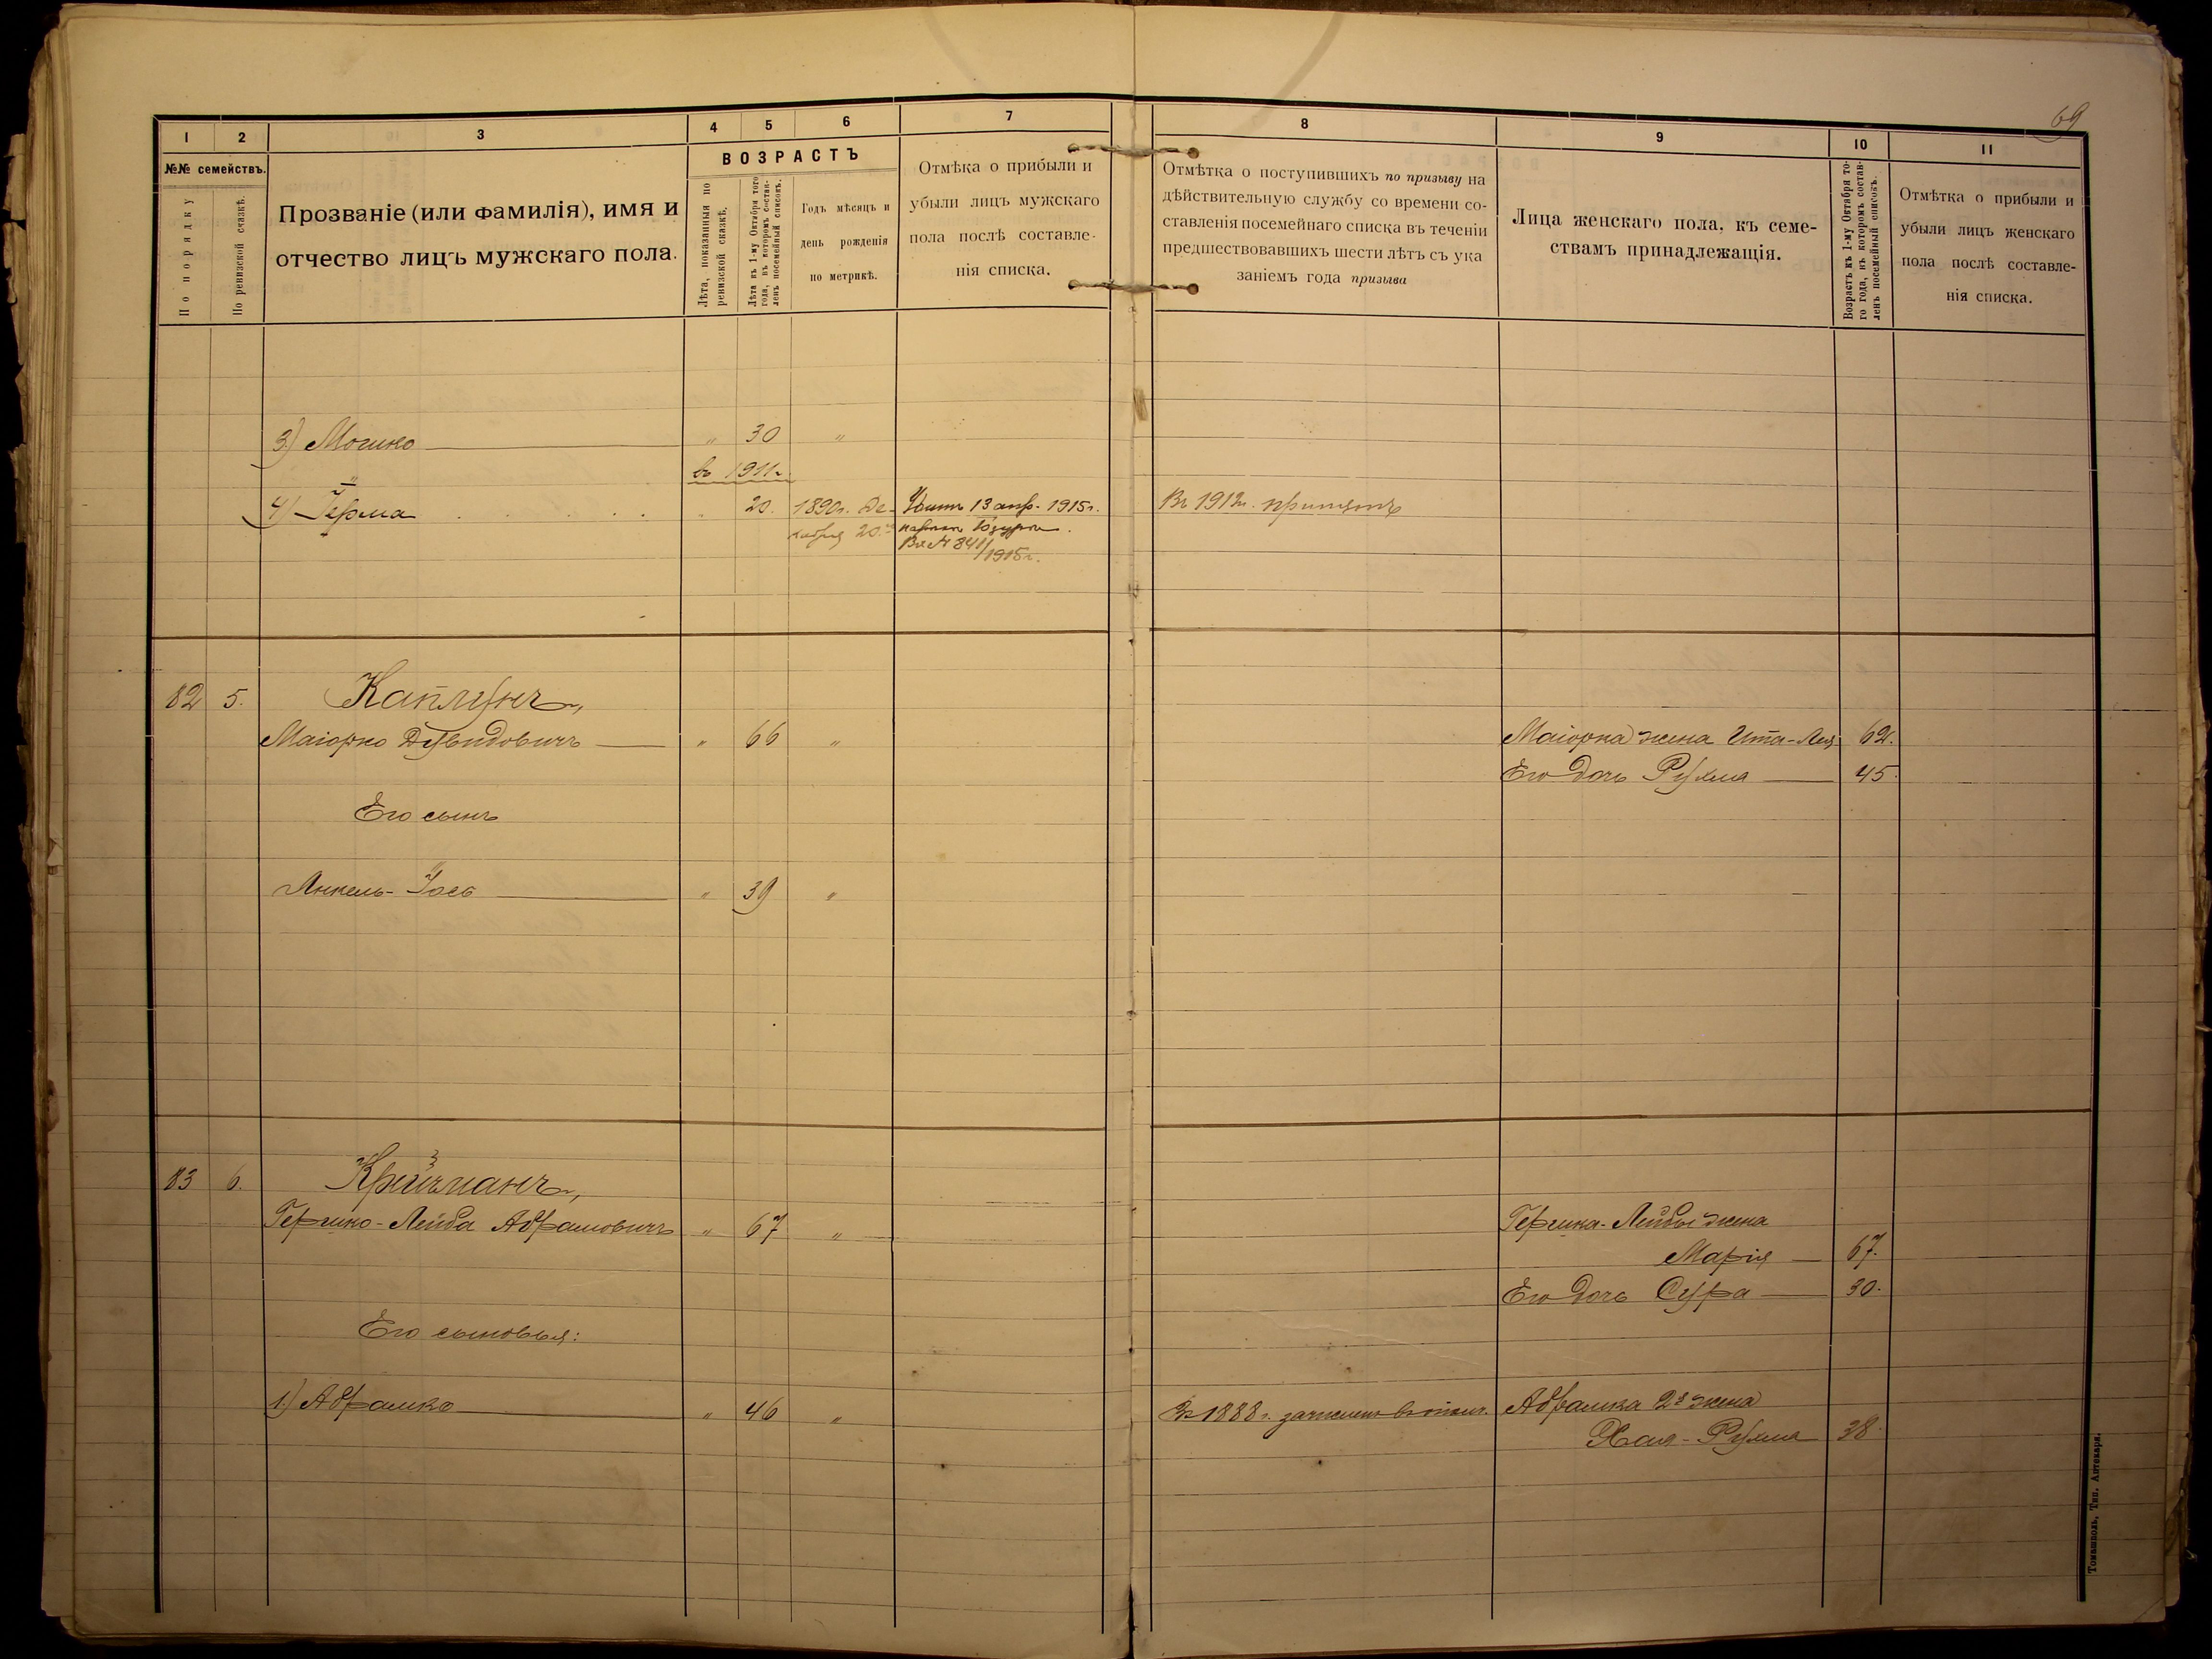 69
1 2 3 4 5 6 7 8 9 10 11
№№ семействъ.
По порядку
По ревизской сказкѣ.
Прозваніе (или фамилія), имя и
отчество лицъ мужскаго пола.
ВОЗРАСТЪ
Лѣта, показанныя по
ревизской сказкѣ.
Лѣта къ 1-му Октября того
года, въ которомъ состав-
ленъ посемейный списокъ.
Годъ мѣсяцъ и
день рожденія
по метрикѣ.
Отмѣка о прибыли и
убыли лицъ мужскаго
пола послѣ составле-
нія списка.
Отмѣтка о поступившихъ по призыву на
дѣйствительную службу со времени со-
ставленія посемейнаго списка въ теченіи
предшествовавшихъ шести лѣтъ съ ука
заніемъ года призыва
Лица женскаго пола, къ семе-
ствамъ принадлежащія.
Возрастъ къ 1-му Октября то-
го года, въ которомъ состав-
ленъ посемейный списокъ.
Отмѣтка о прибыли и
убыли лицъ женскаго
пола послѣ составле-
нія списка.
3) Мошко — " 30 "
въ 1911г.
4) Герма . . . . . . 20. 1890г. Де- Убитъ 13 апр. 1915г. Въ 1912г. принятъ
кабря 20.
Вх № 841/1915г.
82 5. Каплунъ,
Маіорко Дувидовичъ — " 66 " Маіорка жена Ита-Лея 62.
Его дочь Рухма — 45.
Его сынъ
Янкель-Іось — " 39 "
83 6. Крейзманъ,
Гершко-Лейба Абрамовичъ " 67 " Гершка-Лейбы жена
Марія — 67.
Его дочь Сура — 30.
Его сыновья:
1) Абрамко — " 46 " Въ 1888г. зачисленъ въ ополч. Абрамка 2я жена
Хая-Рухма 38.
Томашполь, Тип. Аптекаря.